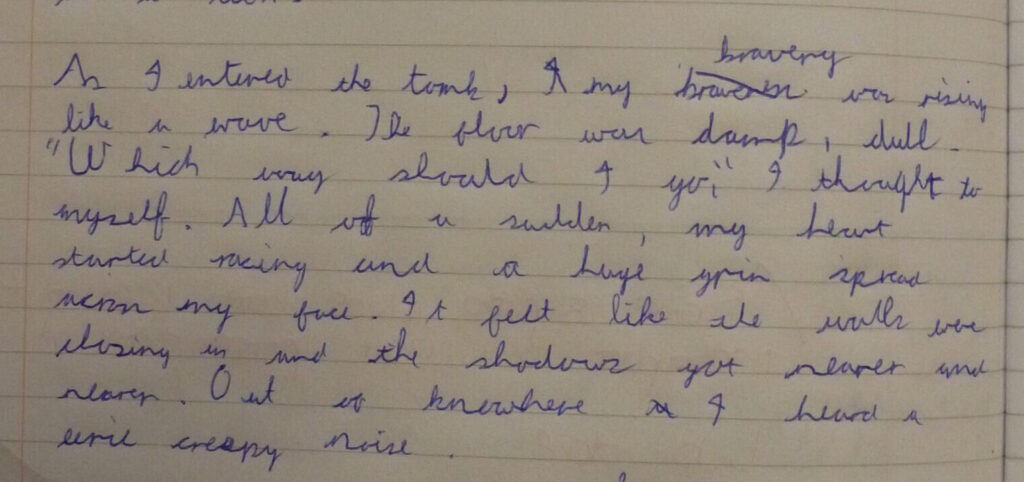 As I entered the tomb, my bravery was rising
like a wave. The floor was damp, dull.
"Which way should I go," I thought to
myself. All of a sudden, my heart
started racing and a huge grin spread
across my face. It felt like the walls were
closing in and the shadows got nearer and
nearer. Out of knowhere I heard a
eerie creepy noise.